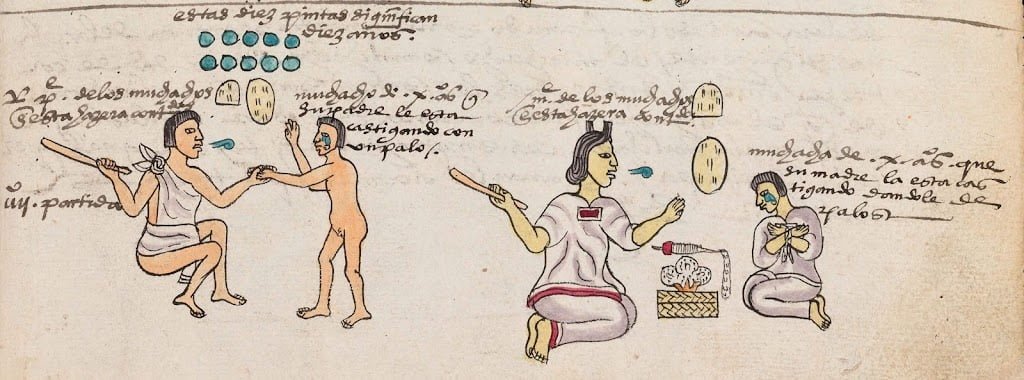 estas diez pintas significan
diez años.
pe. de los muchachos
desta hazera contdos
muchacho de .x. aos q
su padre le esta
castigando con
un palo /.
vij. partida
me. de los muchachos
desta hazera contdos
muchacha de .x. aos. que
su madre la esta cas
tigando dandole de
palos